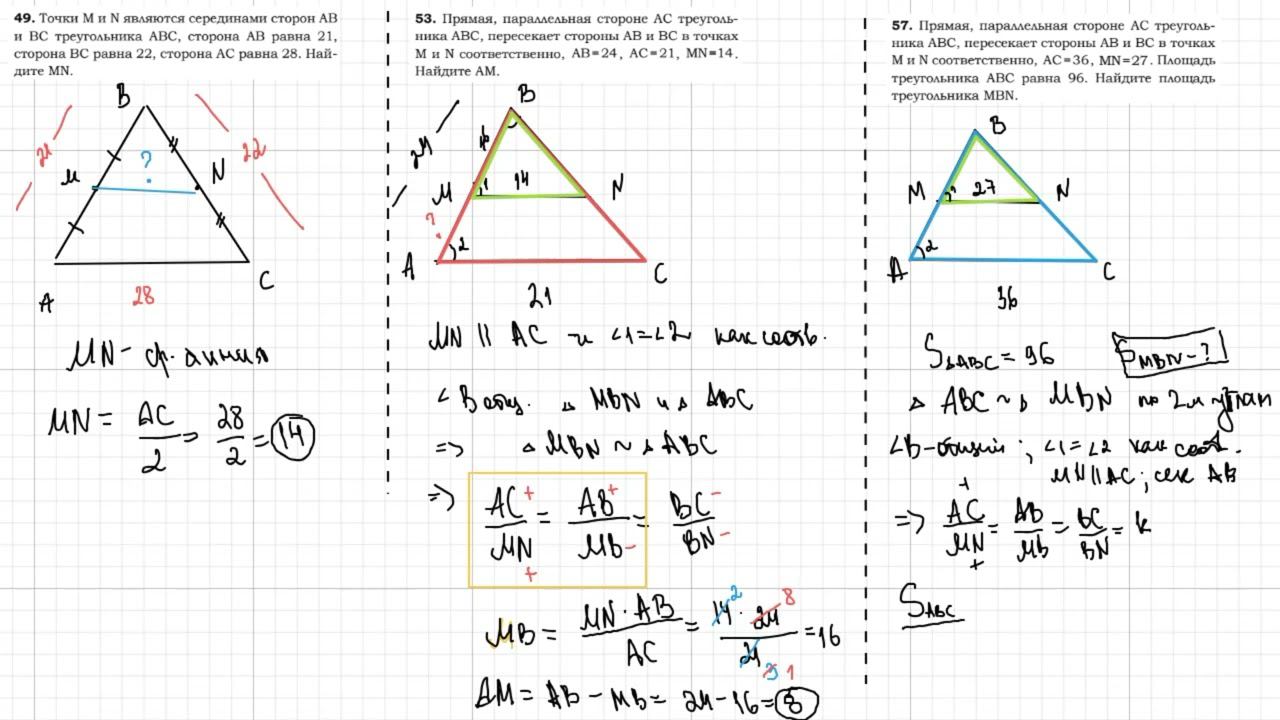 49. Точки M и N являются серединами сторон AB
и BC треугольника ABC, сторона AB равна 21,
сторона BC равна 22, сторона AC равна 28. Най-
дите MN.
B
21
?
22
M
N
A
28
C
MN - ср. линия
MN = AC/2 = 28/2 = 14
53. Прямая, параллельная стороне AC треуголь-
ника ABC, пересекает стороны AB и BC в точках
M и N соответственно, AB=24, AC=21, MN=14.
Найдите AM.
B
24
16
M
1
14
N
?
2
A
C
21
MN || AC и ∠1=∠2 как соотв.
∠B общ. △ MBN и △ ABC
=> △ MBN ~ △ ABC
=> AC+/MN+ = AB+/MB- = BC-/BN-
MB = MN · AB/AC = 14 · 24/21 = 16
2 8
3 1
AM = AB - MB = 24 - 16 = 8
57. Прямая, параллельная стороне AC треуголь-
ника ABC, пересекает стороны AB и BC в точках
M и N соответственно, AC=36, MN=27. Площадь
треугольника ABC равна 96. Найдите площадь
треугольника MBN.
B
M
1
27
N
A
2
C
36
S△ABC = 96 SMBN - ?
△ ABC ~ △ MBN по 2м углам
∠B - общий ; ∠1=∠2 как соот.
MN || AC ; сек AB
=> AC+/MN+ = AB/MB = BC/BN = k
SABC